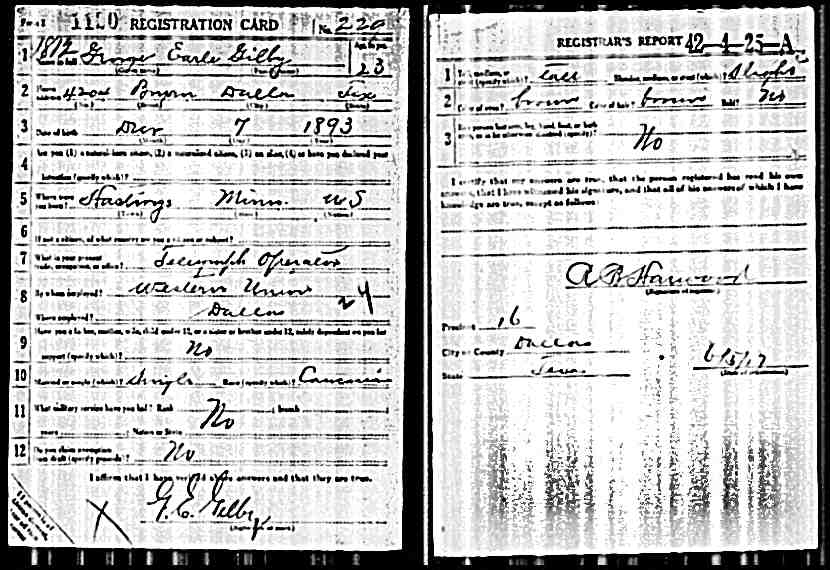 Form 1 1100 REGISTRATION CARD No. 220
1812 George Earle Gilby Age in yrs. 23
(Given name) (Family name)
2 Home address 4204 Bryan Dallas Tex
(No.) (Street) (City) (State)
3 Date of birth Dec 7 1893
(Month) (Day) (Year)
4 Are you (1) a natural-born citizen, (2) a naturalized citizen, (3) an alien, (4) or have you declared your
intention (specify which)?
5 Where were you born? Hastings Minn. U S
(Town) (State) (Nation)
6 If not a citizen, of what country are you a citizen or subject?
7 What is your present trade, occupation, or office? Telegraph Operator
8 By whom employed? Western Union
Where employed? Dallas 24
9 Have you a father, mother, wife, child under 12, or a sister or brother under 12, solely dependent on you for
support (specify which)? No
10 Married or single (which)? Single Race (specify which)? Caucasian
11 What military service have you had? Rank No ; branch
years ; Nation or State
12 Do you claim exemption from draft (specify grounds)? No
I affirm that I have verified above answers and that they are true.
G. E. Gilby
(Signature or mark)
REGISTRAR'S REPORT 42-4-25-A
1 Tall, medium, or short (specify which)? Tall Slender, medium, or stout (which)? Slight
2 Color of eyes? brown Color of hair? brown Bald? No
3 Has person lost arm, leg, hand, foot, or both eyes, or is he otherwise disabled (specify)? No
I certify that my answers are true, that the person registered has read his own
answers, that I have witnessed his signature, and that all of his answers of which I have
knowledge are true, except as follows:
A B Harwood
(Signature of registrar)
Precinct 16
City or County Dallas
State Texas
6/5/17
(Date of registration)